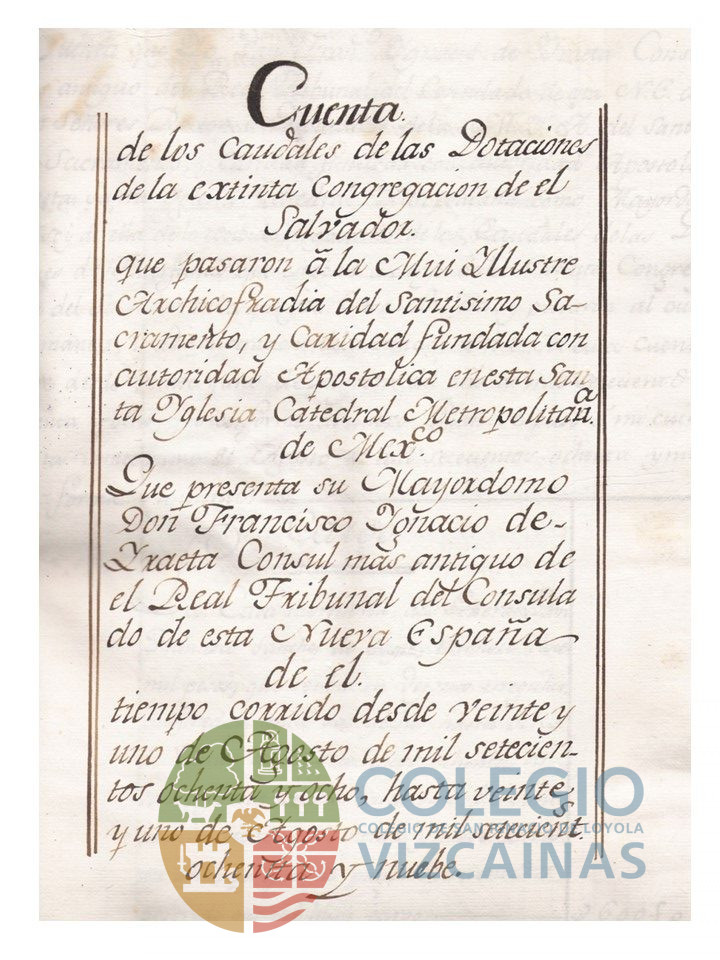 Cuenta.
de los Caudales de las Dotaciónes
de la extinta Congregacion de el
Salvador.
que pasaron â la Mui Yllustre
Archicofradia del Santisimo Sa-
cramento, y Caridad fundada con
autoridad Apostolica en esta San-
ta Yglesia Catedral Metropolitan.a
de Mex.co
Que presenta su Mayordomo
Don Francisco Ygnacio de-
Yraeta Consul mas antiguo de
el Real Tribunal del Consula
do de esta Nueva España
de el.
tiempo corrido desde veinte y
uno de Agosto de mil setecien-
tos ochenta y ocho, hasta veinte
y uno de Agosto de mil setecient.s
ochentta y nuebe.
COLEGIO
COLEGIO DE SAN IGNACIO DE LOYOLA
VIZCAINAS